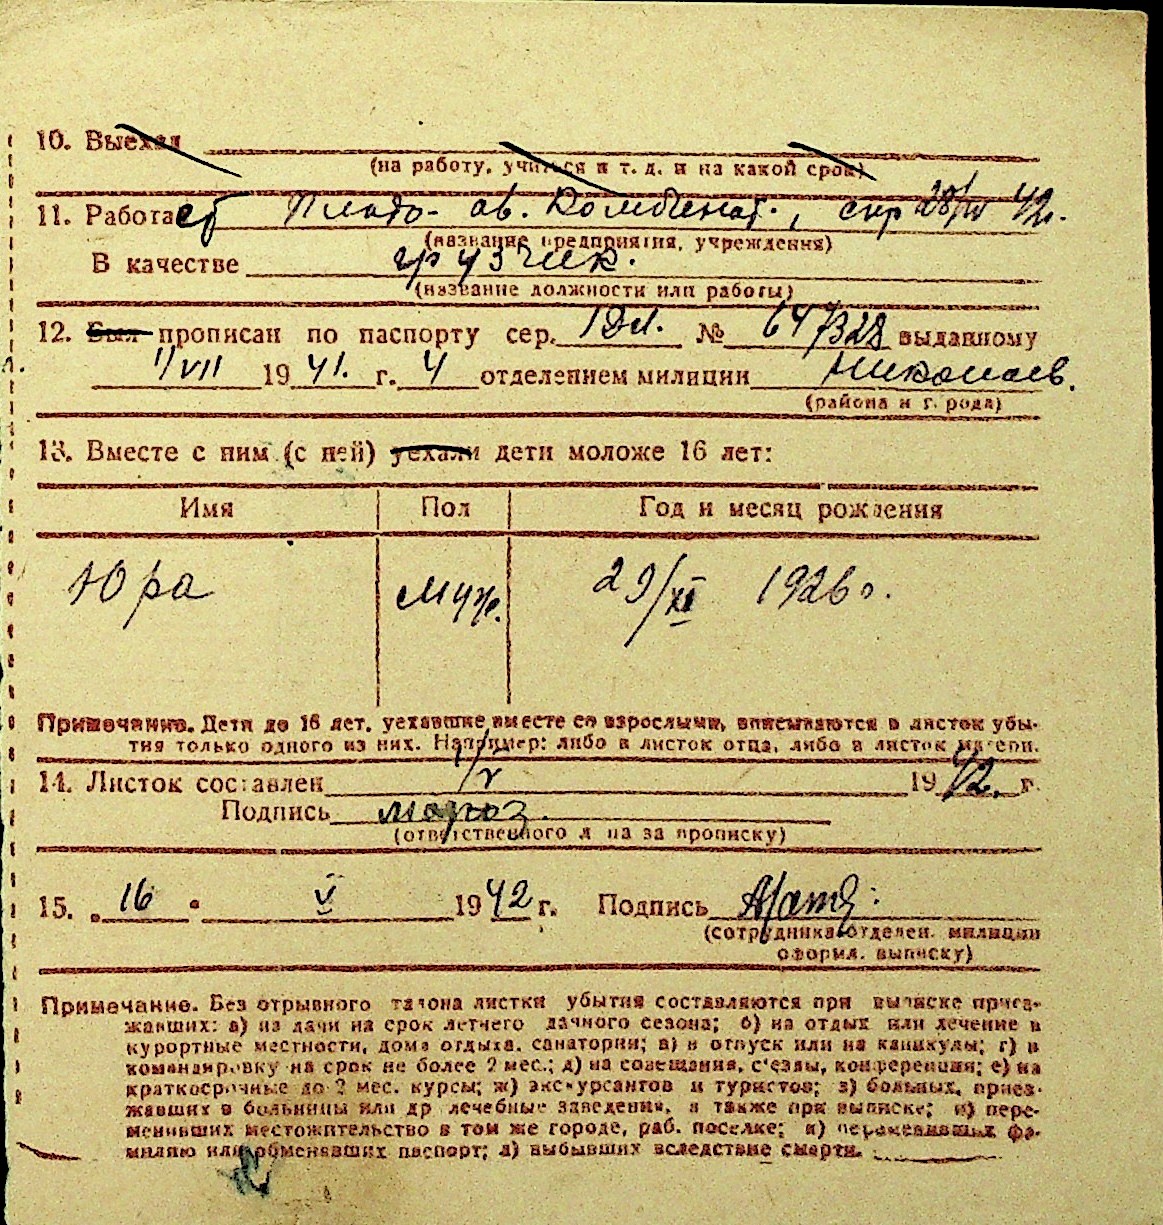 10. Выехал
(на работу, учиться и т. д. и на какой срок)
11. Работает Плодо-ов. Комбинат., спр 28/IV 42г.
(название предприятия, учреждения)
В качестве грузчик.
(название должности или работы)
12. Был прописан по паспорту сер. № 647328 выданному
1/VII 1941. г. 4 отделением милиции Николаев.
(района и города)
13. Вместе с ним (с ней) уехали дети моложе 16 лет:
Имя Пол Год и месяц рождения
Юра муж. 29/XI 1926 г.
Примечание. Дети до 16 лет, уехавшие вместе со взрослыми, вписываются в листок убы-
тия только одного из них. Например: либо в листок отца, либо в листок матери.
14. Листок составлен 1/V 1942. г.
Подпись Мороз.
(ответственного лица за прописку)
15. „16 “ V 1942 г. Подпись
(сотрудника отделен. милиции
оформл. выписку)
Примечание. Без отрывного талона листки убытия составляются при выписке приез-
жавших: а) на дачи на срок летнего дачного сезона; б) на отдых или лечение в
курортные местности, дома отдыха, санатории; в) в отпуск или на каникулы; г) в
командировку на срок не более 2 мес.; д) на совещания, с'езды, конференции; е) на
краткосрочные до 2 мес. курсы; ж) экскурсантов и туристов; з) больных, приез-
жавших в больницы или др лечебные заведения, а также при выписке; и) пере-
менивших местожительство в том же городе, раб. поселке; к) переменивших фа-
милию или обменявших паспорт; л) выбывших вследствие смерти.